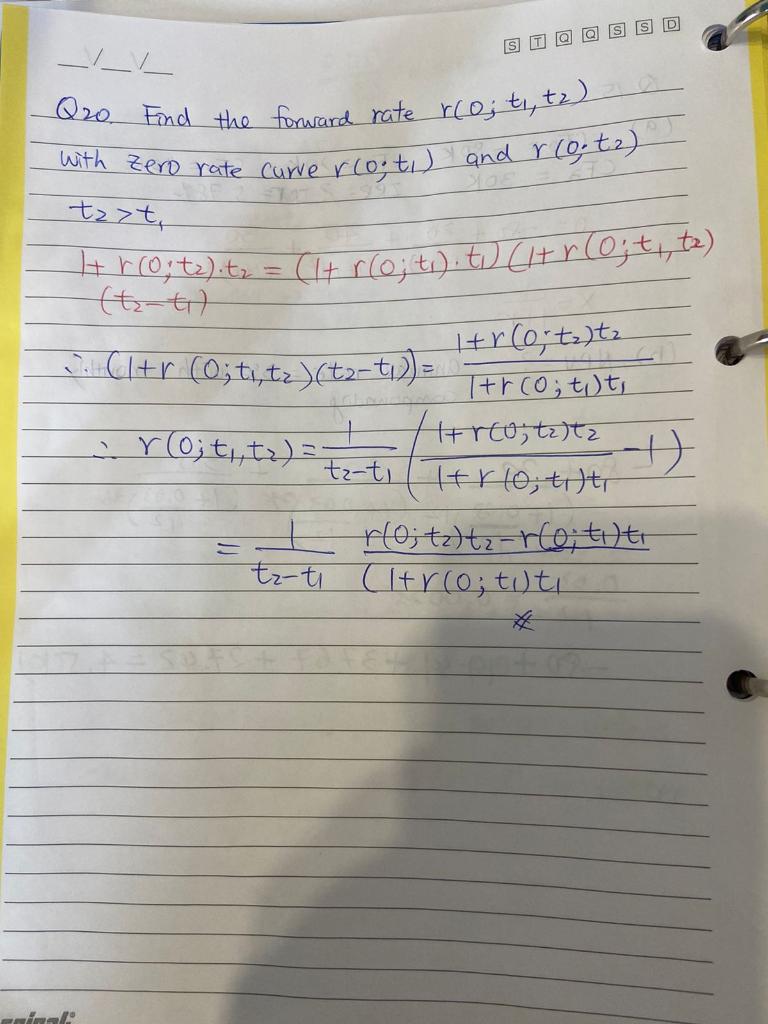 S T Q Q S S D
__/__/__
Q20. Find the forward rate r(0; t₁, t₂)
with zero rate curve r(0; t₁) and r(0; t₂)
t₂ > t₁
1+ r(0; t₂)·t₂ = (1+ r(0; t₁)·t₁) (1+ r(0; t₁, t₂)
(t₂-t₁)
∴ (1+r (0; t₁, t₂)(t₂-t₁)) = 1+r(0; t₂)t₂ / 1+r(0; t₁)t₁
∴ r(0; t₁, t₂) = 1/(t₂-t₁) ( 1+r(0; t₂)t₂ / 1+r(0; t₁)t₁ - 1 )
= 1/(t₂-t₁) r(0; t₂)t₂ - r(0; t₁)t₁ / (1+r(0; t₁)t₁